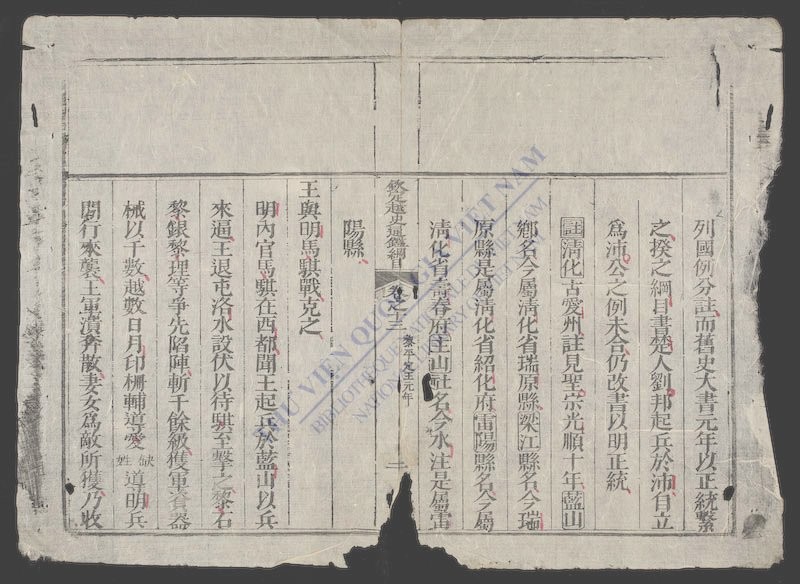 列國例分註而舊史大書元年以正統繫
之揆之綱目書楚人劉邦起兵於沛自立
爲沛公之例未合仍改書以明正統
註清化古愛州註見聖宗光順十年藍山
鄉名今屬清化省瑞原縣梁江縣名今瑞
原縣是屬清化省紹化府雷陽縣名今屬
清化省壽春府主山社名今水注是屬雷
欽定越史通鑑綱目 卷之十三 黎平定王元年 二
陽縣
王與明馬騏戰克之
明內官馬騏在西都聞王起兵於藍山以兵
來逼王退屯洛水設伏以待騏至擊之黎石
黎銀黎理等爭先陷陣斬千餘級獲軍資器
械以千數越數日月印柵輔導愛 缺姓 導明兵
間行來襲王軍潰奔散妻女爲敵所獲乃收
THƯ VIỆN QUỐC GIA VIỆT NAM
BIBLIOTHÈQUE NATIONALE DU VIETNAM
NATIONAL LIBRARY OF VIETNAM